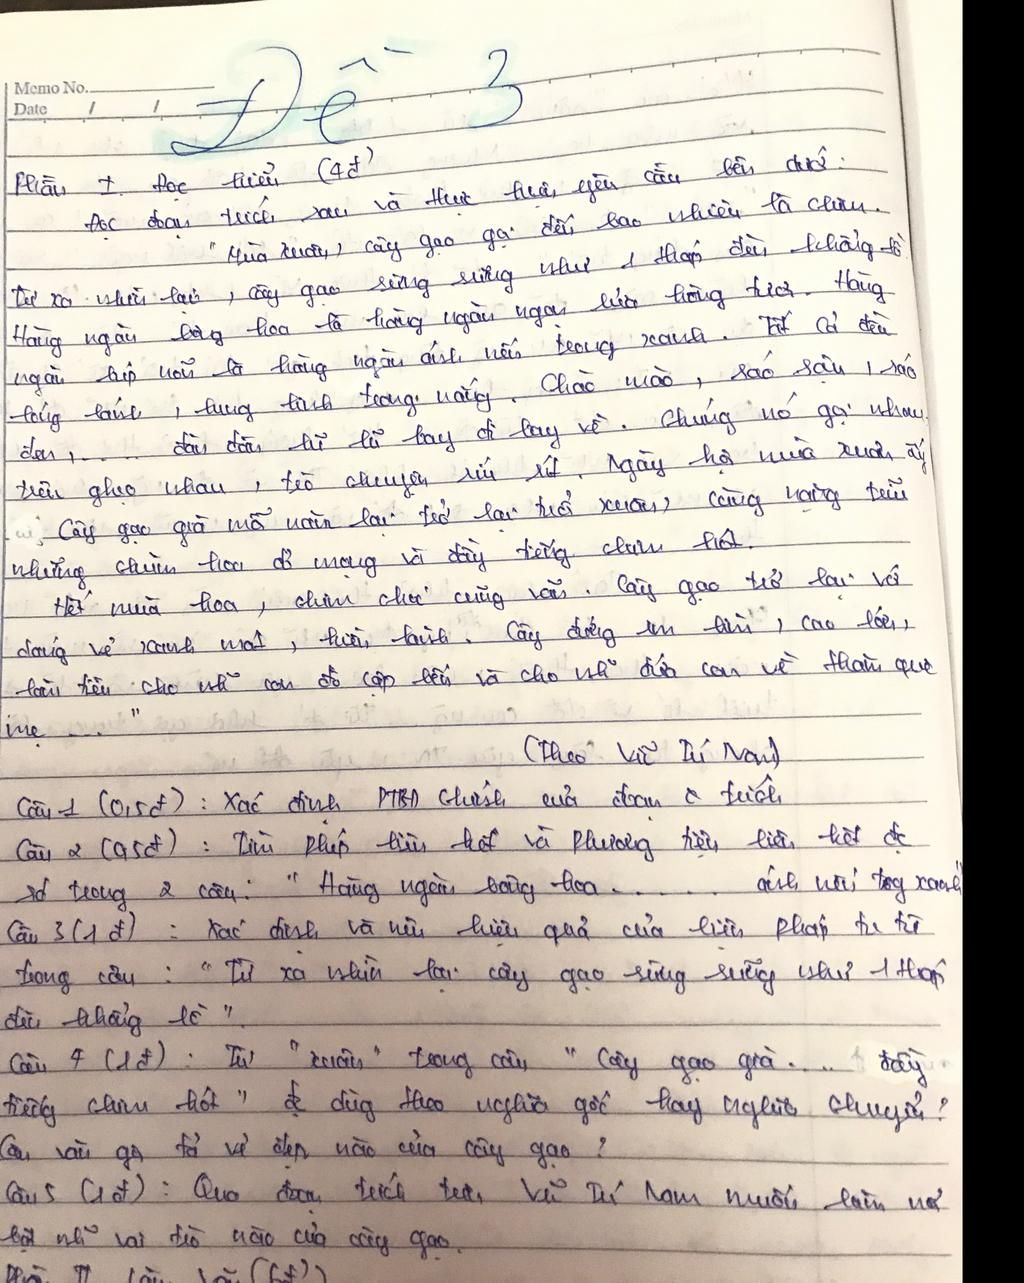 Memo No.
Date / /
Đề 3
Phần I. Đọc hiểu (4đ)
Đọc đoạn trích sau và thực hiện yêu cầu bên dưới:
"Mùa xuân, cây gạo gọi đến bao nhiêu là chim.
Từ xa nhìn lại, cây gạo sừng sững như 1 tháp đèn khổng lồ
Hàng ngàn bông hoa là hàng ngàn ngọn lửa hồng tươi. Hàng
ngàn búp nõn là hàng ngàn ánh nến trong xanh. Tất cả đều
lóng lánh, lung linh trong nắng. Chào mào, sáo sậu, sáo
đen,.... đàn đàn lũ lũ bay đi bay về. Chúng nó gọi nhau
trêu ghẹo nhau, trò chuyện ríu rít. Ngày hội mùa xuân đấy
Cây gạo già mỗi năm lại trở lại tuổi xuân, càng nặng trĩu
những chùm hoa đỏ mọng và đầy tiếng chim hót.
Hết mùa hoa, chim chóc cũng vãn. Cây gạo trở lại với
dáng vẻ xanh mát, hiền lành. Cây đứng im lìm, cao lớn,
làm tiêu cho nh~ con đò cập bến và cho nh~ đứa con về thăm quê
mẹ ...."
(Theo Vũ Tú Nam)
Câu 1 (0,5đ): Xác định PTBĐ chính của đoạn trích
Câu 2 (0,5đ): Tìm phép liên kết và phương tiện liên kết đc
sd trong 2 câu: "Hàng ngàn bông hoa ........ ánh nến trong xanh"
Câu 3 (1đ): Xác định và nêu hiệu quả của biện pháp tu từ
trong câu: "Từ xa nhìn lại cây gạo sừng sững như 1 tháp
đèn khổng lồ".
Câu 4 (1đ). Từ "xuân" trong câu "Cây gạo già.... đầy
tiếng chim hót" đc dùng theo nghĩa gốc hay nghĩa chuyển?
Câu văn gợi tả vẻ đẹp nào của cây gạo?
Câu 5 (1đ): Qua đoạn trích trên, Vũ Tú Nam muốn làm nổi
bật nh~ vai trò nào của cây gạo.
Phần II. Làm văn (6đ)